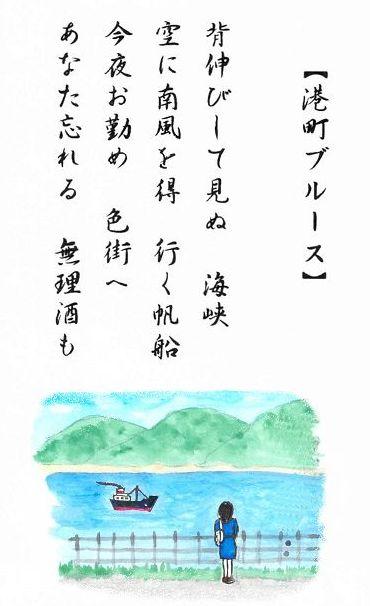 【港町ブルース】
背伸びして見ぬ 海峡
空に南風を得 行く帆船
今夜お勤め 色街へ
あなた忘れる 無理酒も